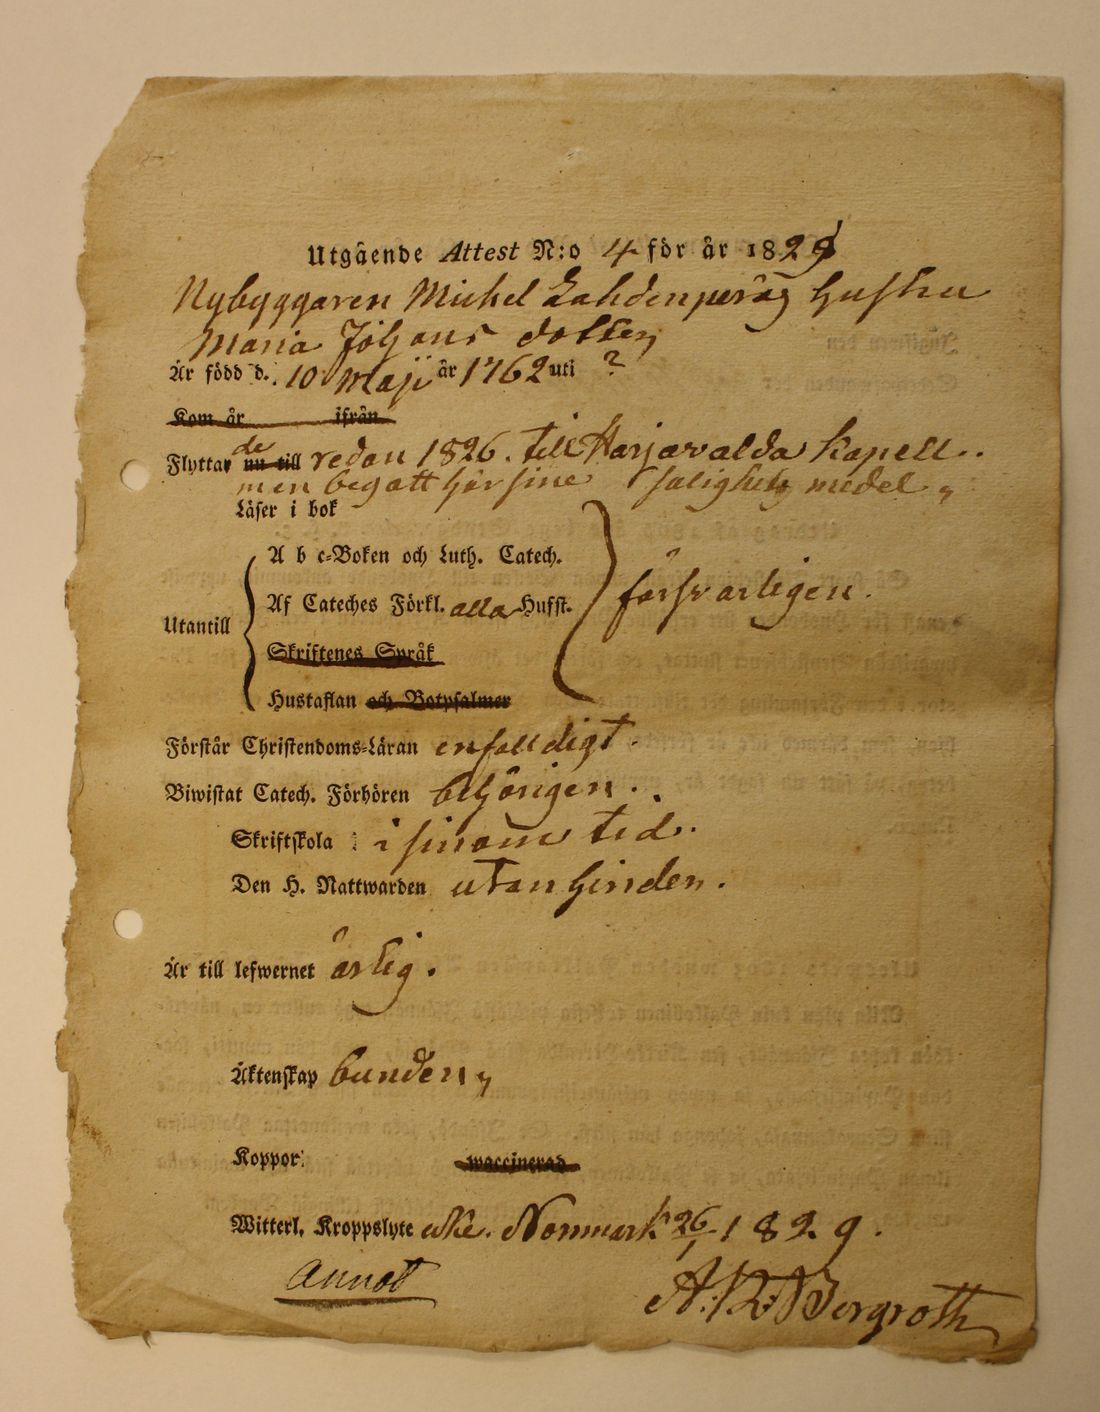 Utgående Attest N:o 4 för år 1829
Nybyggaren Michel Lahdenperäs hustru
Maria Johans dotter,
Är född d. 10 Maji år 1762 uti ?
Kom år ifrån
Flyttade nu till redan 1826. till Harjavalda Kapell..
men begått här sine salighets medel,
Läser i bok
A b c-Boken och Luth. Catech.
Af Cateches Förkl. alla Hufst. försvarligen.
Utantill
Skriftenes Språk
Hustaflan och Botpsalmer
Förstår Christendoms-Läran enfalldigt.
Biwistat Catech. Förhören behörigen.
Skriftskola i sinom tid.
Den H. Nattwarden utan hinder.
Är till lefwernet ärlig.
Äktenskap bunden,
Koppor: waccinerad
Witterl. Kroppslyte icke. Normark 26/1 1829.
Annot
A:R:Bergroth